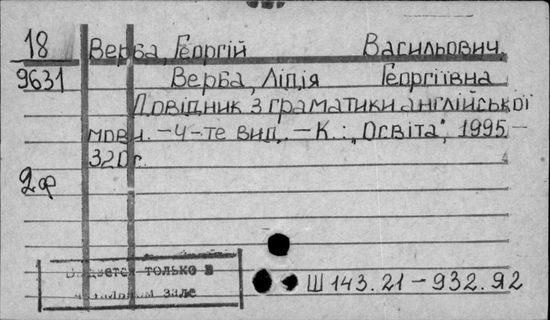 18 Верба, Георгій Васильович,
9631 Верба, Лідія Георгіївна
Довідник з граматики англійської
мови. – 4-те вид. – К.: „Освіта", 1995 –
320 с.
2ф
Выдается только в
читальном зале
Ш 143.21 – 932.Я2